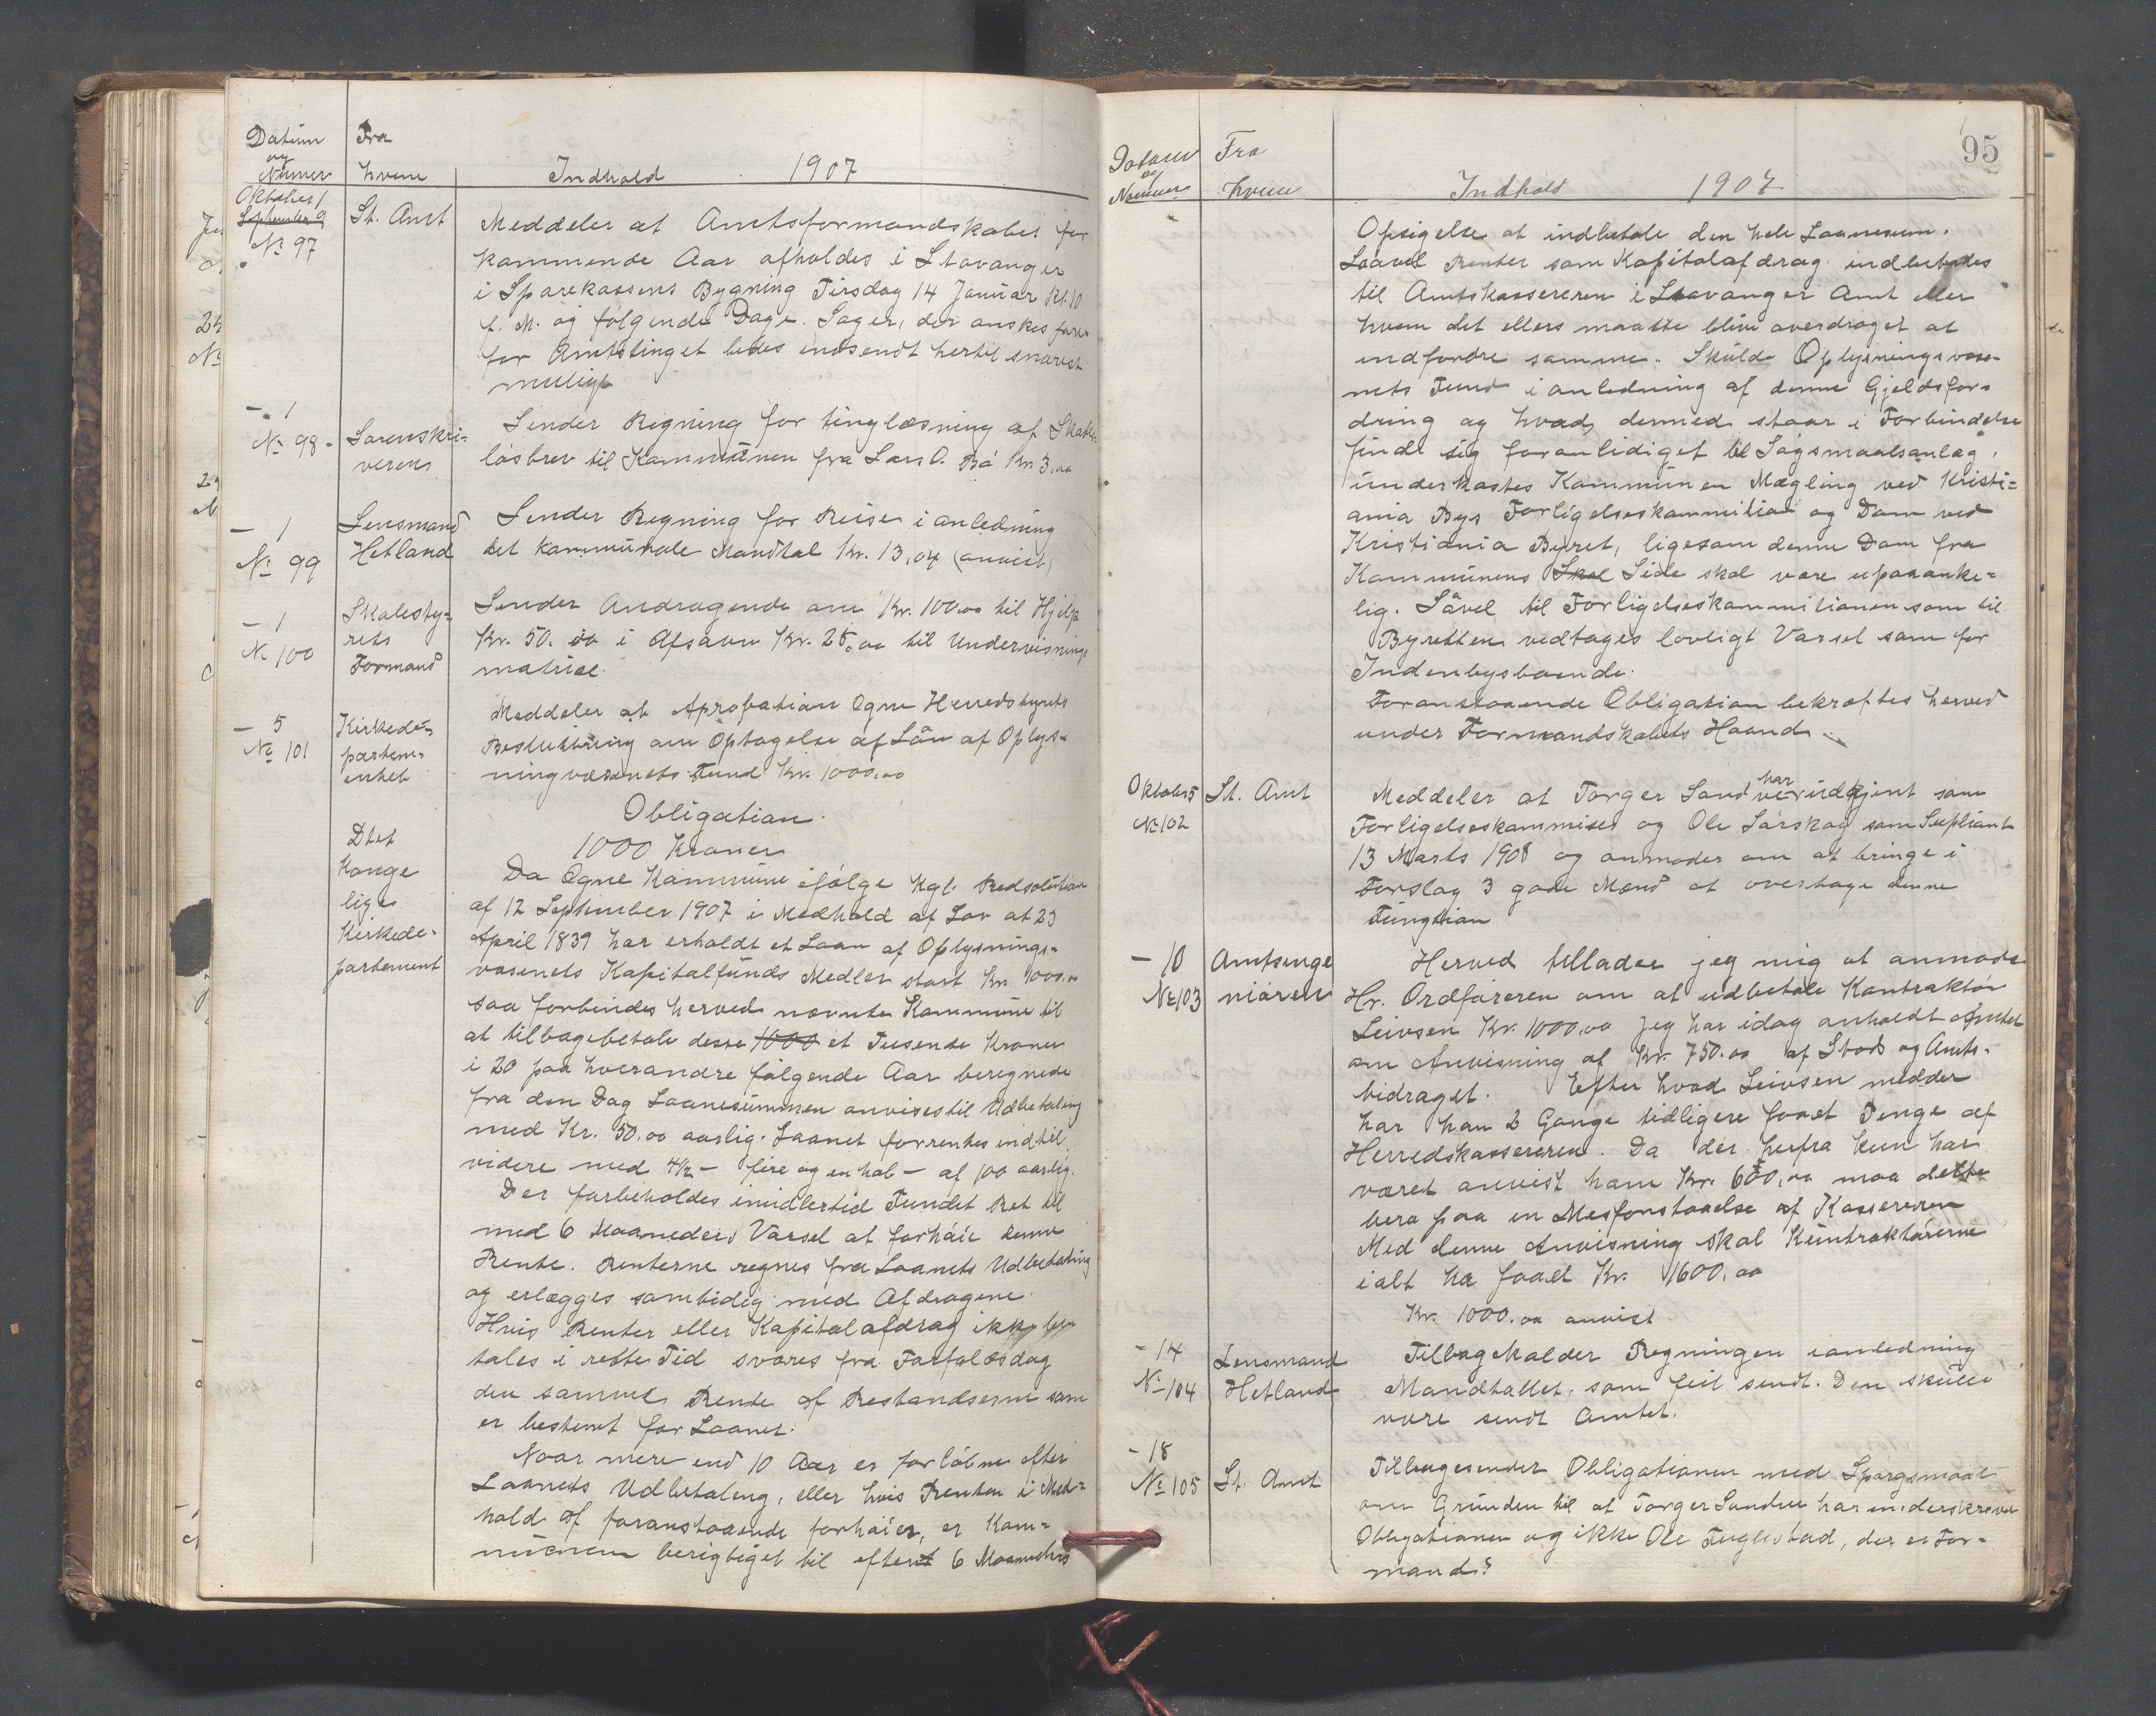 Datum Fra
og
Numer hvem Indhold 1907
Oktober 1
September 9
No 97
St. Amt
Meddeler at Amtsformandskabet for
kommende Aar afholdes i Stavanger
i Sparekassens Bygning Tirsdag 14 Januar Kl. 10
f. M. og følgende Dage. Sager, der ønskes fore-
for Amtstinget bedes indsendt hertil snarest
muligt
- 1
No 98 -
Sorenskri-
veren
Sender Regning for tinglæsning af Skades-
løsbrev til Kommunen fra Lars O. Bø Kr. 3.00
- 1
No 99
Lensmand
Hetland
Sender Regning for Reise i anledning
det kommunale Mandtal Kr. 13,04 (anvist)
- 1
No 100
Skolesty-
rets
Formand
Sender Andragende om Kr. 100.00 til Hjelp
Kr. 50.00 i Afsavn Kr. 25.00 til Undervisnings
matriel.
- 5
No 101
Kirkede-
partem-
entet
Meddeler at Aprobation Ogne Herredstyrets
Beslutning om Optagelse af Lån af Oplys-
ningvæsenets Fund Kr. 1000.00
Obligation.
1000 Kroner
Dtet
Konge
lige
Kirkede-
partement
Da Ogne Kommune ifølge Kgl. Redsolution
af 12 September 1907 i Medhold af Lov at 23
April 1839 har erholdt et Laan af Oplysnings-
væsenets Kapitalfunds Medler stort Kr. 1000.00
saa forbindes herved nævnte Kommune til
at tilbagebetale desse 1000 et Tusende Kroner
i 20 paa hverandre følgende Aar beregnede
fra den Dag Laanesummen anvises til Udbetaling
med Kr. 50.00 aarlig. Laanet forrentes indtil
videre med 4½ - fire og en hal - af 100 aarlig.
Der forbeholdes imidlertid Fundet Ret til
med 6 Maaneders Varsel at forhøie denne
Rente. Renterne regnes fra Laanets Udbetaling
og erlægges samtidig med Afdragene.
Hvis Renter eller Kapitalafdrag ikke be-
tales i rette Tid svares fra Forfaldsdag
den samme Rente af Restandserne som
er bestemt for Laanet.
Naar mere end 10 Aar er forløbne efter
Laanets Udbetaling, eller hvis Renten i Med-
hold af foranstaaende forhøies, er Kom-
munen berigtiget til efter et 6 Maaneders
95
Datum Fra
og
Nummer hvem Indhold 1907
Opsigelse at indbetale den hele Laanesum.
Saavel Renter som Kapitalafdrag indbetales
til Amtskassereren i Stavanger Amt eller
hvem det ellers maatte blive overdraget at
indfordre samme. Skulde Oplysningsvæse-
nets Fund i anledning af denne Gjeldsfor-
dring og hvad dermed staar i Forbindelse
finde sig foranlidiget til Søgsmaalsanlæg,
underkastes Kommunen Mægling ved Kristi-
ania Bys Forligelseskommition og Dom ved
Kristiania Byret, ligesom denne Dom fra
Kommunens Skal Side skal være upaaanke-
lig. Såvel til Forligelseskommitionen som til
Byretten vedtages lovligt Varsel som for
Indenbysboende.
Foranstaaende Obligation bekræftes herved
under Formandskabets Haand.
Oktober 5
No 102
St. Amt
Meddeler at Torger Sand har udtjent som
Forligelseskommisær og Ole Sørskog som Supliant
13 Marts 1908 og anmoder om at bringe i
Forslag 3 gode Mænd at overtage denne
Fungtion
- 10
No 103
Amtsinge
niøren
Herved tillader jeg mig at anmode
Hr. Ordføreren om at udbetale Kontraktør
Leivsen Kr. 1000.00 Jeg har idag anholdt Amtet
om Anvisning af Kr. 750.00 af Stads og Amts-
bidraget. Efter hvad Leivsen medder
har han 2 Gange tidligere faaet Penge af
Herredskassereren. Da der herfra kun har
været anvist ham Kr. 600,00 maa dette
bero paa en Mesforstaaelse af Kassereren
Med denne Anvisning skal Kuntraktørerne
ialt ha faaet Kr. 1600,00
Kr. 1000.00 anvist
- 14
No 104
Lensmand
Hetland
Tilbagekalder Regningen i anledning
Mandtallet, som feil sendt. Den skulle
være sendt Amtet.
- 18
No 105
St. Amt
Tilbagesender Obligationen med Spørgsmaal
om Grunden til at Torger Sandve har underskrevet
Obligationen og ikke Ole Fuglestad, der er For-
mand?